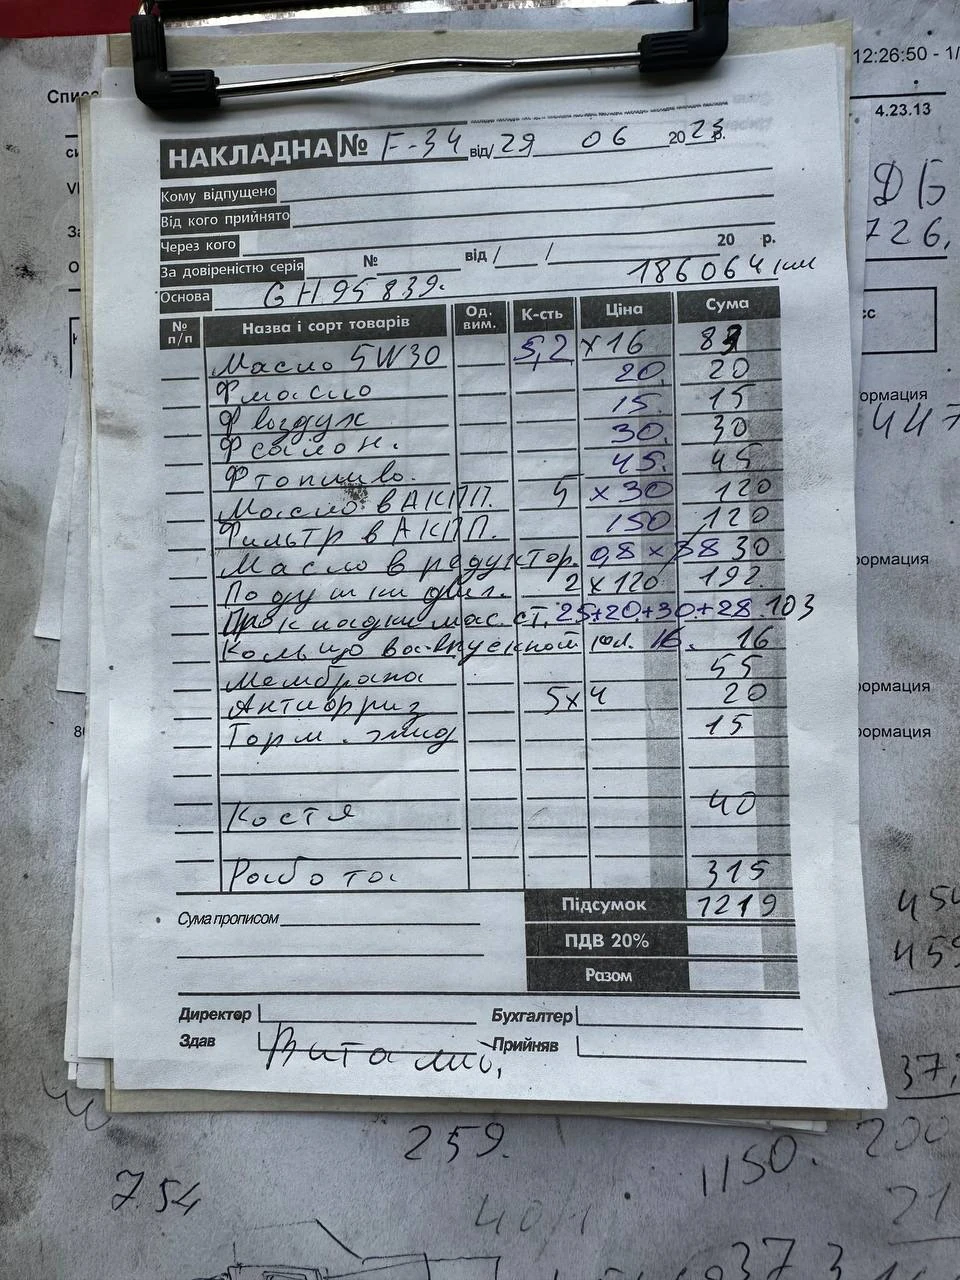 12:26:50 - 1/
4.23.13
НАКЛАДНА № F-34 від/ 29 06 2023р.
Кому відпущено
Від кого прийнято
Через кого
За довіреністю серія № від / / 20 р.
186064 км
Основа GH95839.
№ п/п Назва і сорт товарів Од. вим. К-сть Ціна Сума
Масло 5W30 5,2 х 16 83
Ф масло 20. 20
Ф воздух 15. 15
Ф салон. 30. 30
Ф топливо. 45. 45
Масло в АКПП. 4 х 30 120
Фильтр в АКПП. 150 120
Масло в редуктор. 0,8 х 38 30
Подушки двиг. 2 х 120 192.
Прокладки мас. ст. 25+20+30+28. 103
Кольцо во впускной кол. 16. 16
Мембрана 55
Антифриз 5х4 20
Торм. жид 15
Костя 40
Работа 315
Підсумок 1219
Сума прописом
ПДВ 20%
Разом
Директор Бухгалтер
Здав Виталий, Прийняв
ДБ
726,
447
ормация
ормация
ормация
454
459
37,
259.
1150.
200
7.54
40/1
21
373